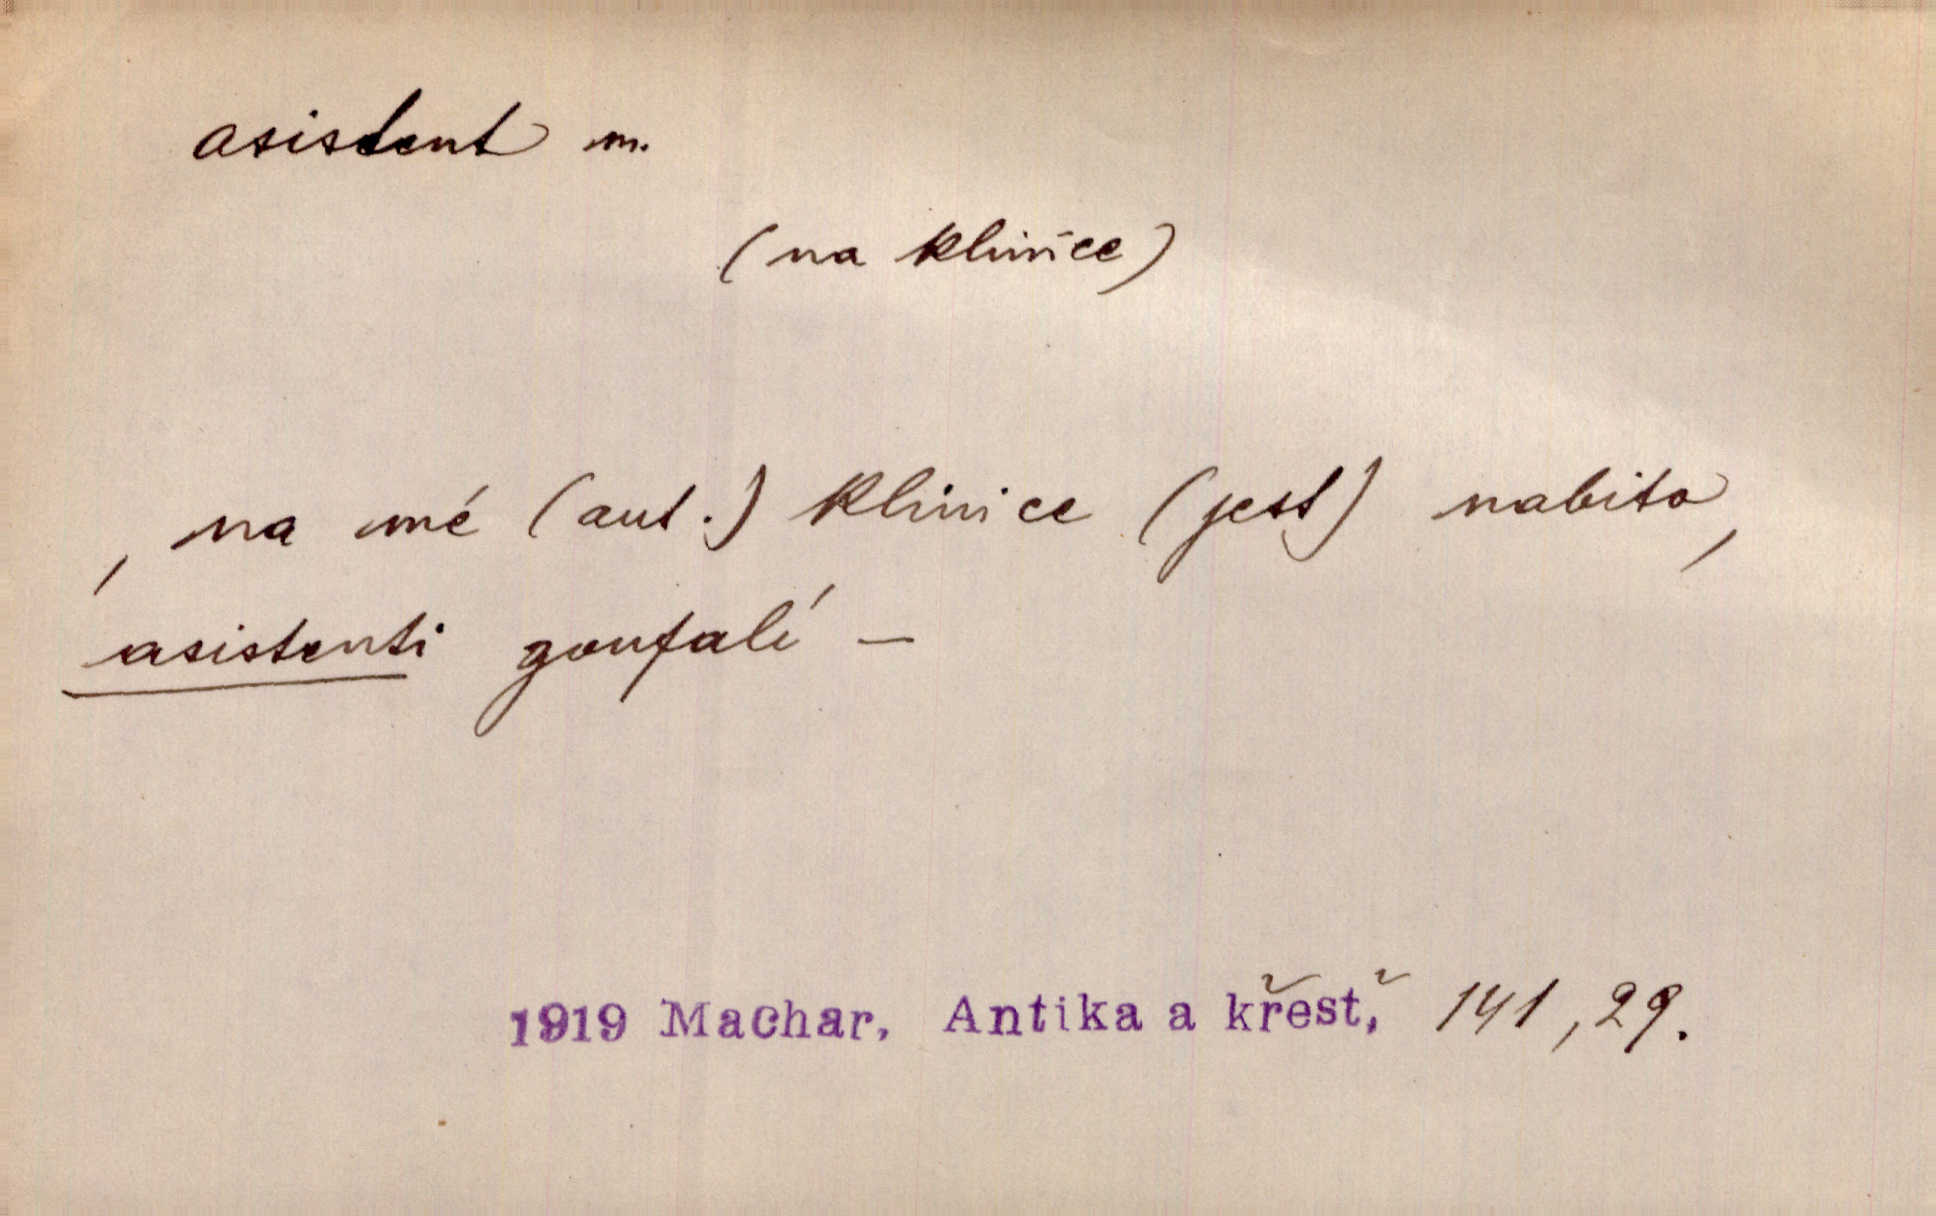 asistent m.
(na klinice)
, na mé (aut.) klinice (jest) nabito,
asistenti zoufalí —
1919 Machar, Antika a křesť, 141, 29.